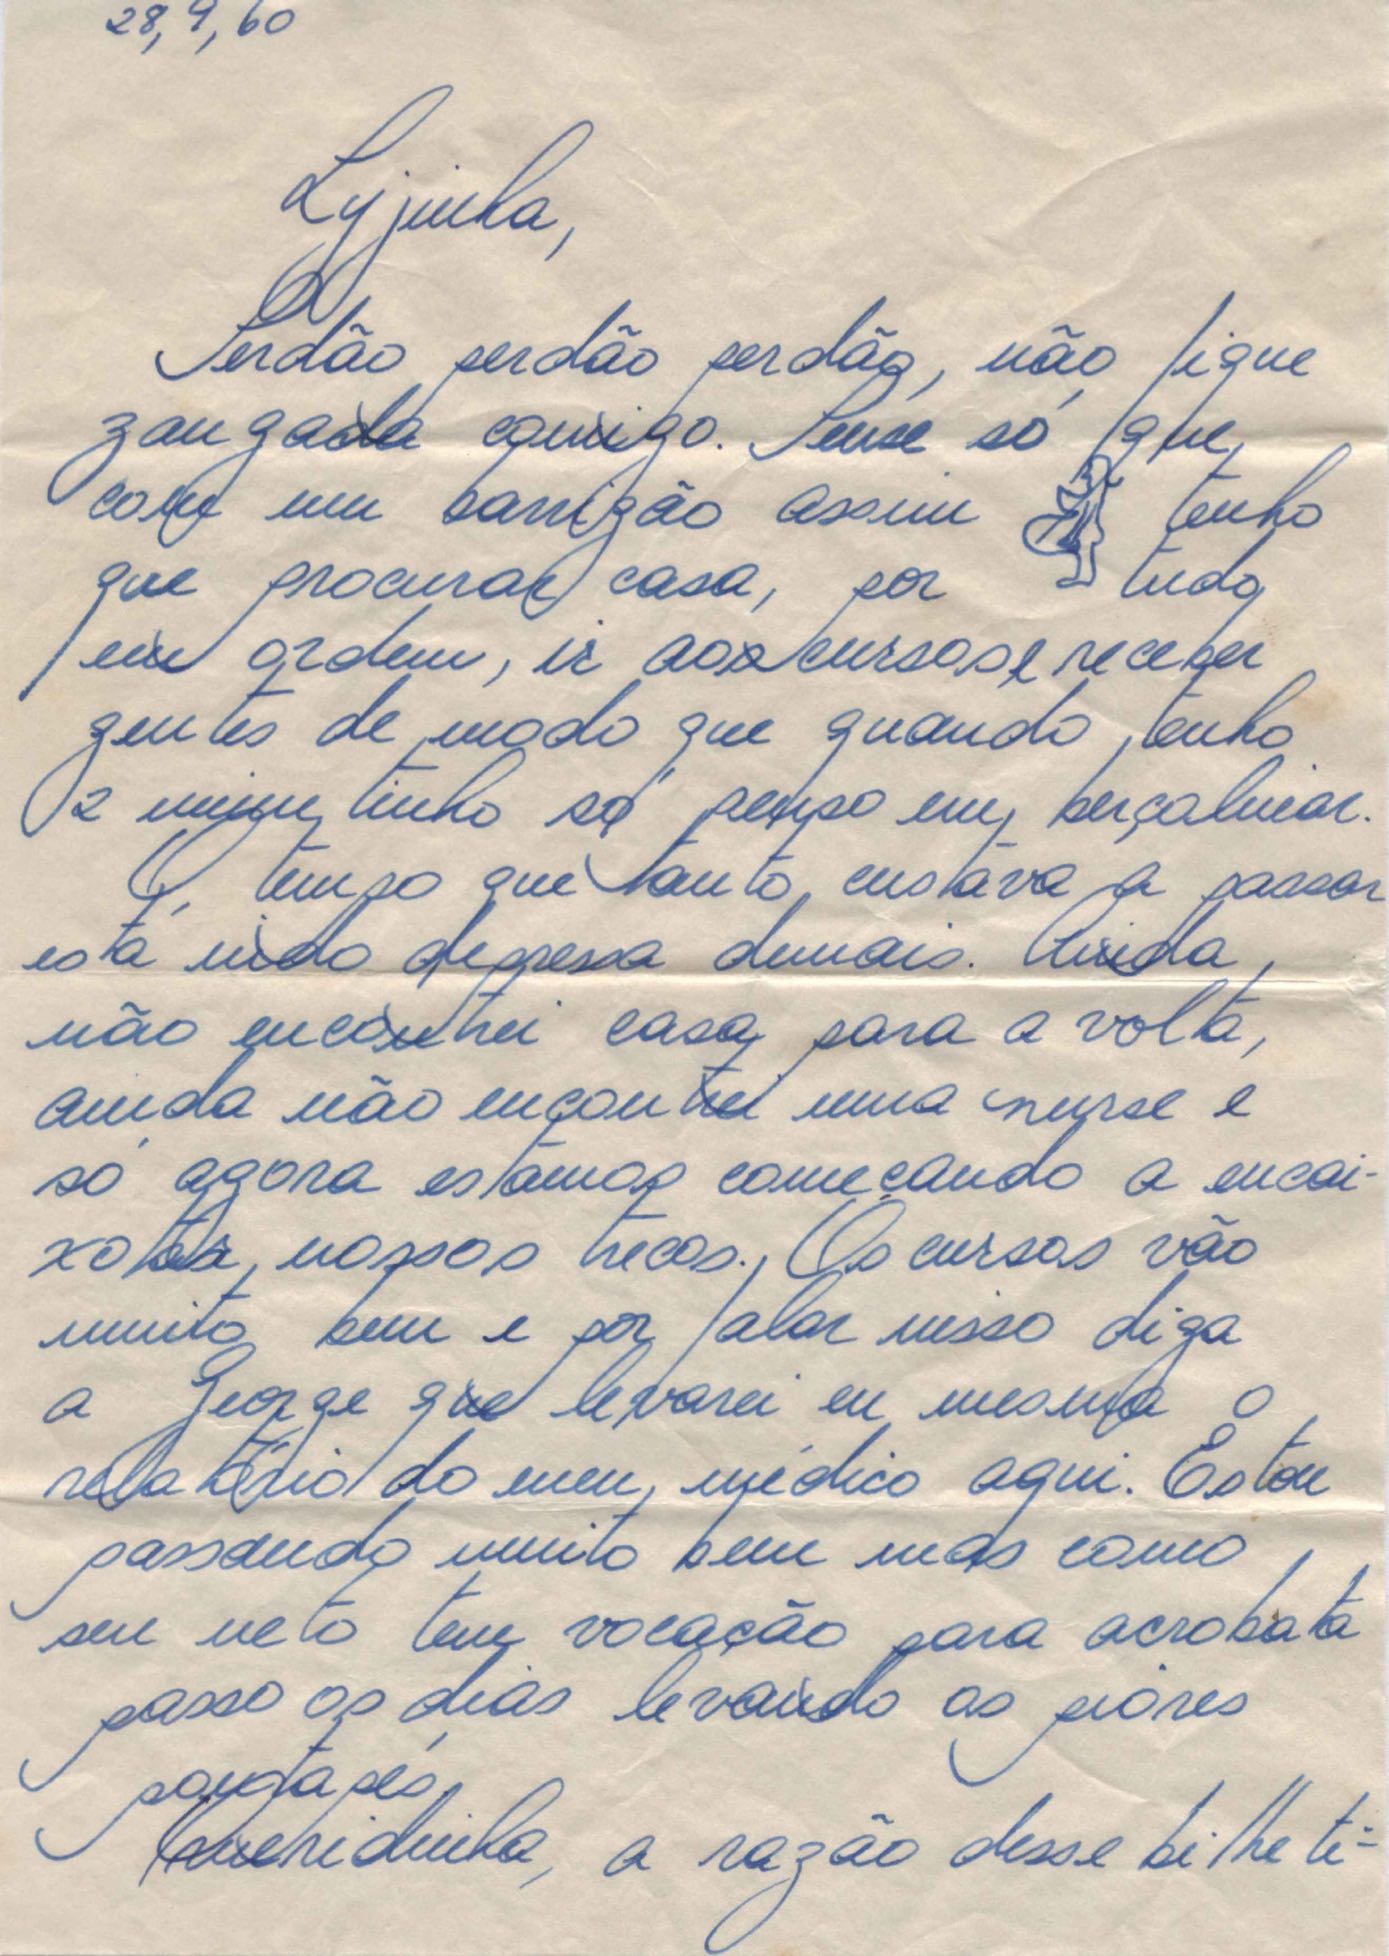 28,9,60
Lyjinha,
Perdão perdão perdão, não fique
zangada comigo. Pense só que
com um barrigão assim tenho
que procurar casa, por tudo
em ordem, ir aos cursos e receber
gentes de modo que quando tenho
2 minutinho só penso em
O tempo que tanto custava a passar
está indo depressa demais. Ainda
não encontrei casa para a volta,
ainda não encontrei uma nurse e
só agora estamos começando a encai-
xotar nossos trecos. Os cursos vão
muito bem e por falar nisso diga
a George que levarei eu mesma o
relatório do meu médico aqui. Estou
passando muito bem mas como
seu neto tem vocação para acrobata
passo os dias levando os piores
pontapés
Queridinha, a razão desse bilheti-